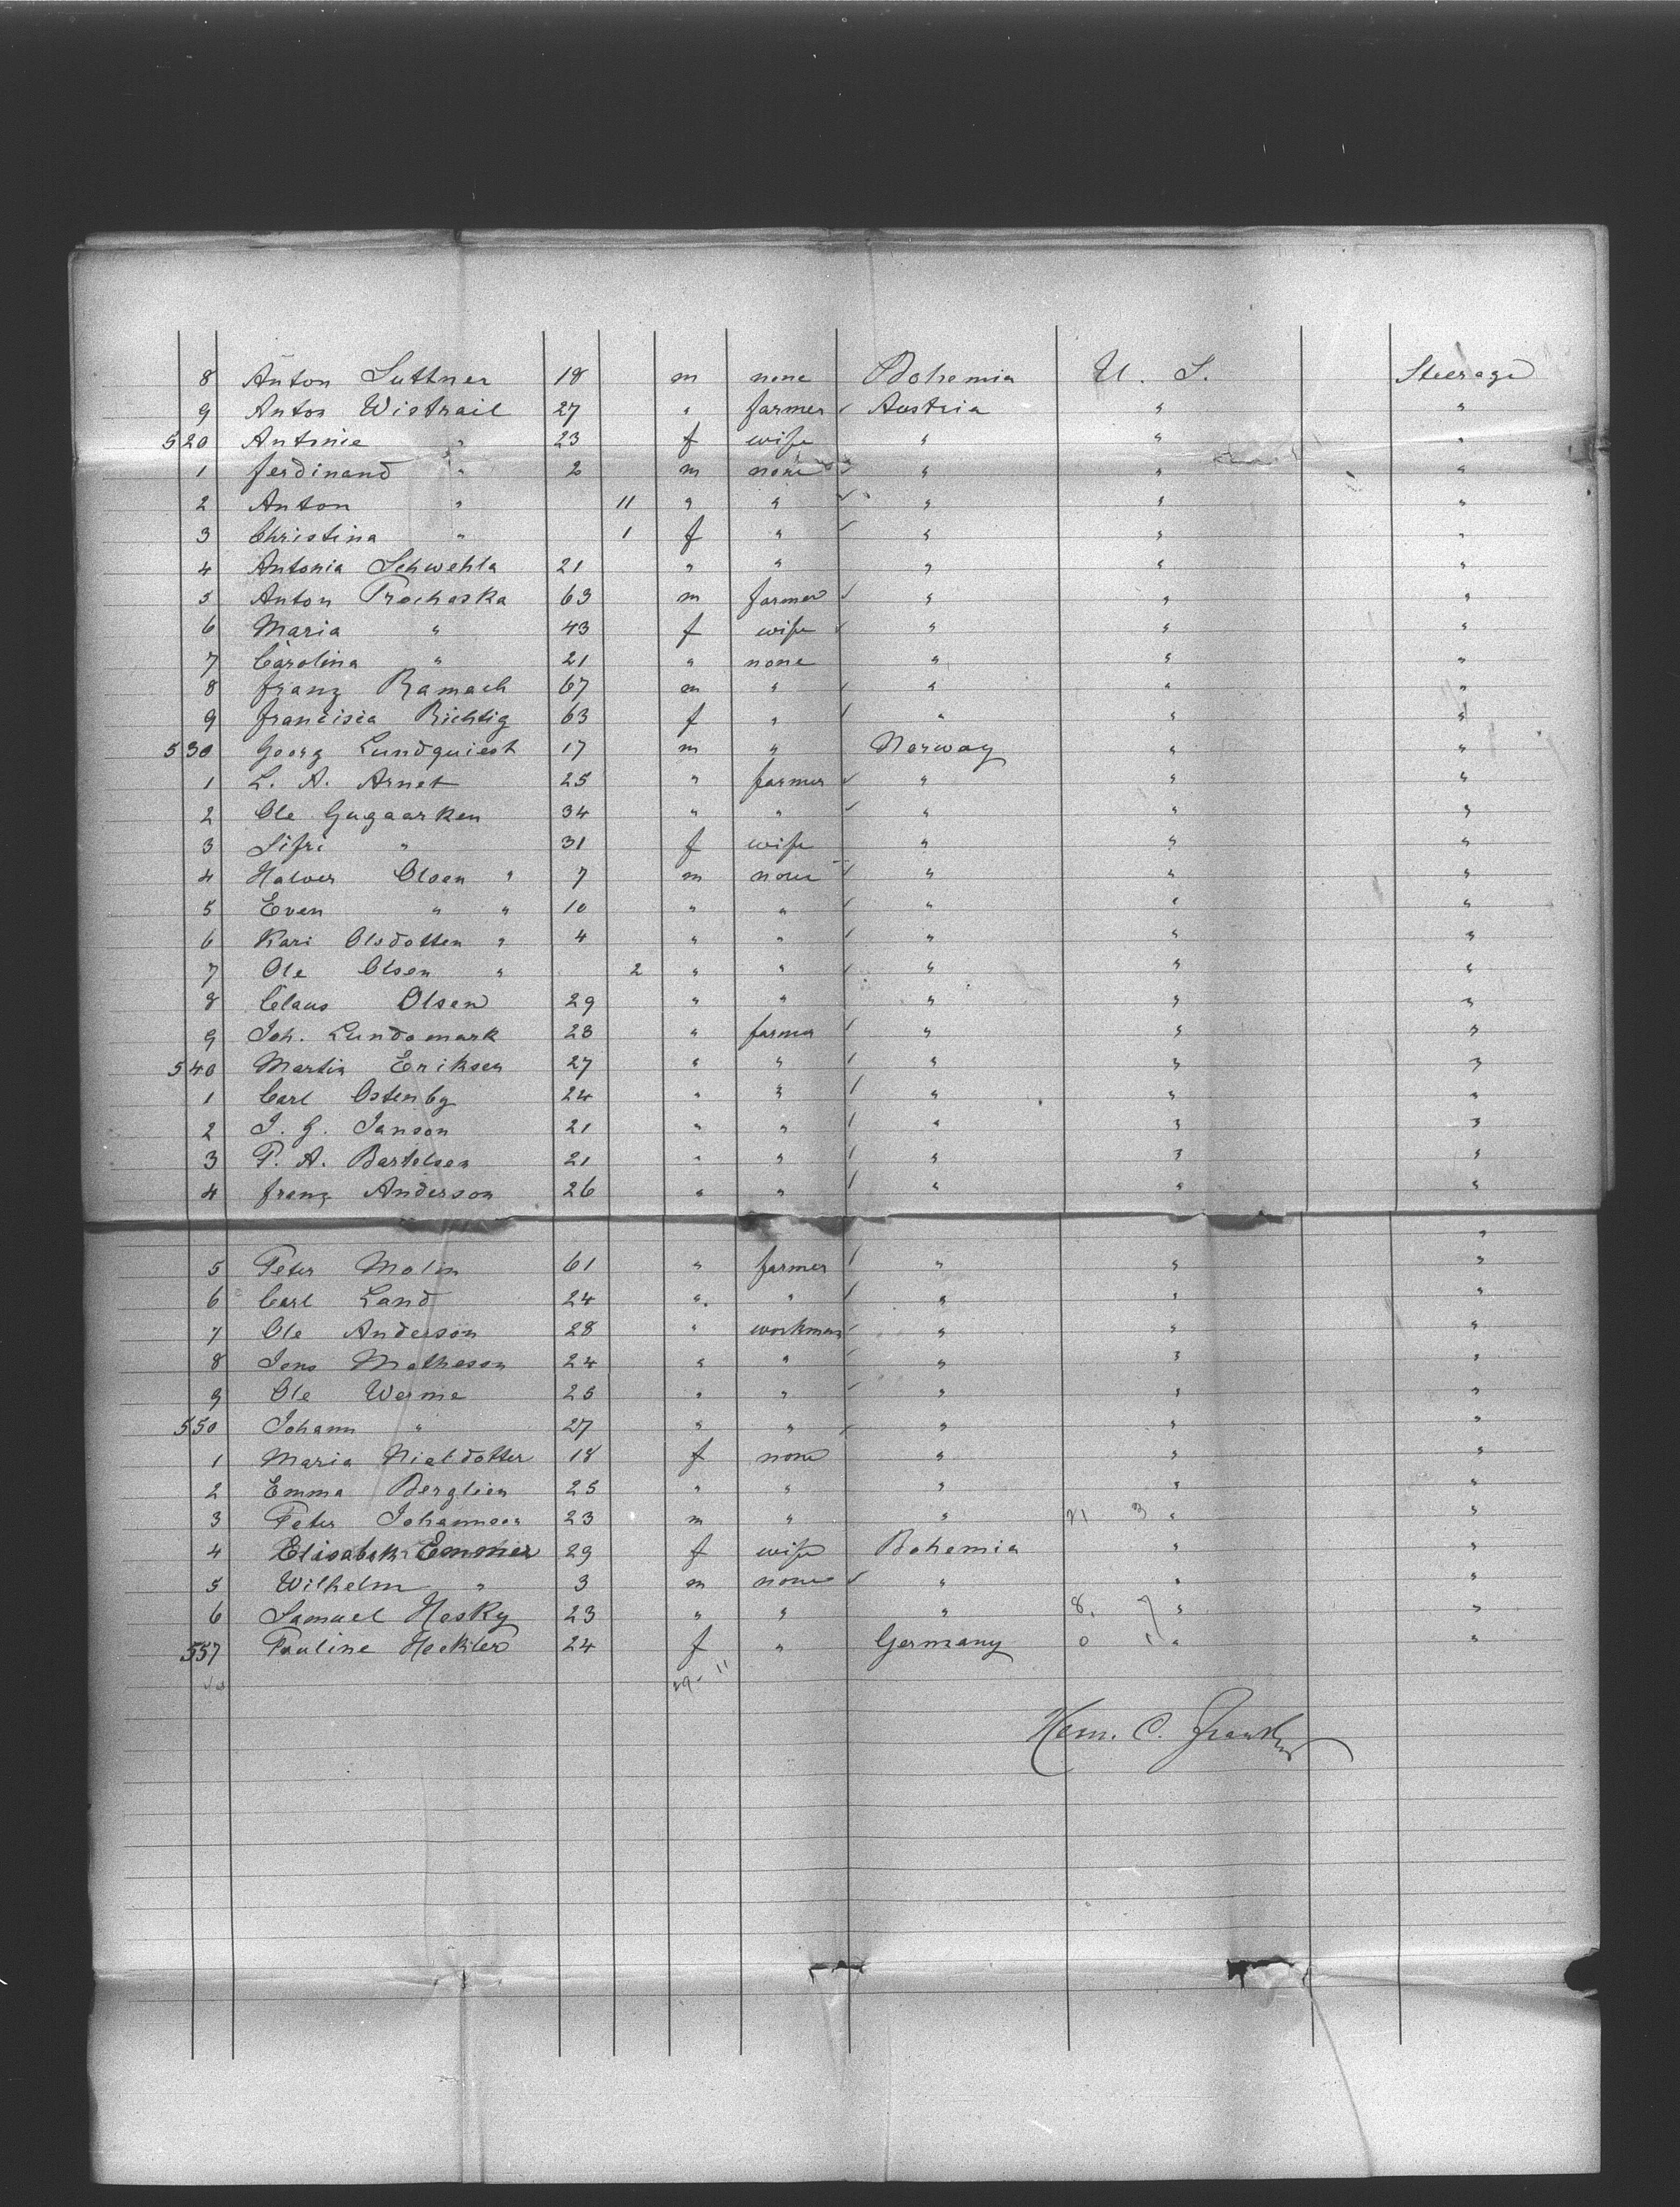 8 Anton Suttner 18 m none Bohemia U. S. Steerage
9 Anton Wistrail 27 " farmer ✓ Austria " "
520 Antonie " 23 f wife " " "
1 Ferdinand " 2 m none ✓ " " "
2 Anton " 11 " " ✓ " " "
3 Christina " 1 f " ✓ " " "
4 Antonia Schwehla 21 " " " " "
5 Anton Prochaska 63 m farmer ✓ " " "
6 Maria " 43 f wife ✓ " " "
7 Carolina " 21 " none " " "
8 Franz Ramach 67 m " / " " "
9 Francisca Richtig 63 f " / " " "
530 Georg Lundquiest 17 m " Norway " "
1 L. A. Arnet 25 " farmer ✓ " " "
2 Ole Gugaarken 34 " " ✓ " " "
3 Sifri " 31 f wife " " "
4 Halver Olsen " 7 m none ✓ " " "
5 Even " " 10 " " / " " "
6 Kari Olsdotten " 4 " " / " " "
7 Ole Olsen " 2 " " / " " "
8 Claus Olsen 29 " " / " " "
9 Joh. Lundemark 28 " farmer / " " "
540 Martin Eriksen 27 " " / " " "
1 Carl Ostenby 24 " " / " " "
2 J. G. Janson 21 " " / " " "
3 P. A. Bartelsen 21 " " / " " "
4 Franz Anderson 26 " " / " " "
"
5 Peter Molin 61 " farmer / " " "
6 Carl Land 24 " " / " " "
7 Ole Anderson 28 " workman ✓ " " "
8 Jens Matheson 24 " " ✓ " " "
9 Ole Werme 25 " " ✓ " " "
550 Johann " 27 " " ✓ " " "
1 Maria Nielsdotter 18 f none " " "
2 Emma Berglien 25 " " " " "
3 Peter Johannsen 23 m " " 21 3 " "
4 Elisabeth Emmer 29 f wife Bohemia " "
5 Wilhelm " 3 m none ✓ " " "
6 Samuel Hesky 23 " " " 8. 7 " "
557 Pauline Heckler 24 f " Germany 0 1 " "
29 11
Herm. C.